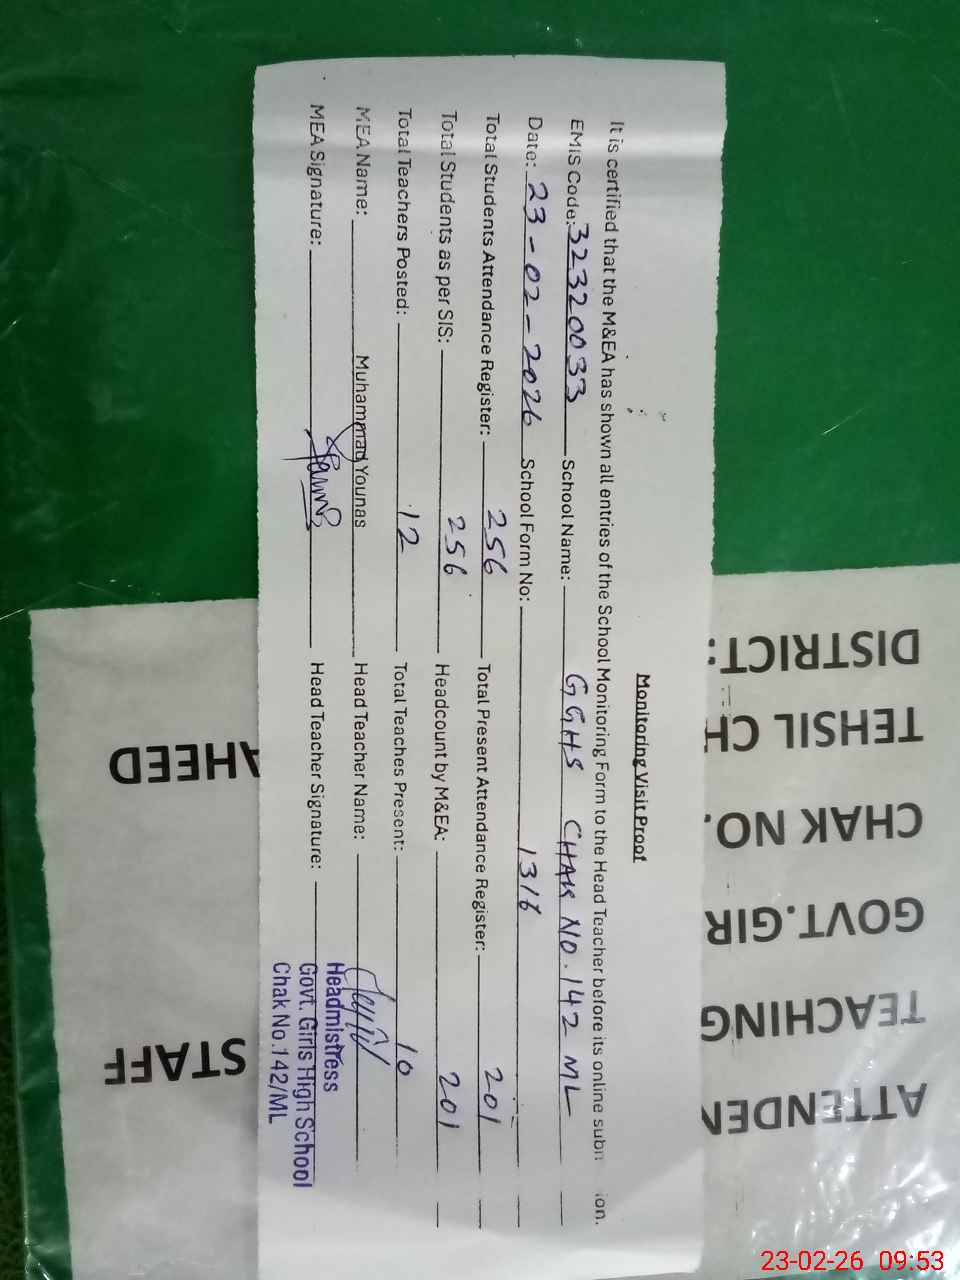 Monitoring Visit Proof
It is certified that the M&EA has shown all entries of the School Monitoring Form to the Head Teacher before its online subn ion.
EMIS Code: 32320033 School Name: GGHS CHAK NO. 142 ML
Date: 23-02-2026 School Form No: 1316
Total Students Attendance Register: 256 Total Present Attendance Register: 201
Total Students as per SIS: 256 Headcount by M&EA: 201
Total Teachers Posted: 12 Total Teaches Present: 10
MEA Name: Muhammad Younas Head Teacher Name:
MEA Signature: Head Teacher Signature:
Headmistress
Govt. Girls High School
Chak No.142/ML
ATTENDEN
TEACHING STAFF
GOVT.GIR
CHAK NO.
TEHSIL CH AHEED
DISTRICT:
23-02-26 09:53